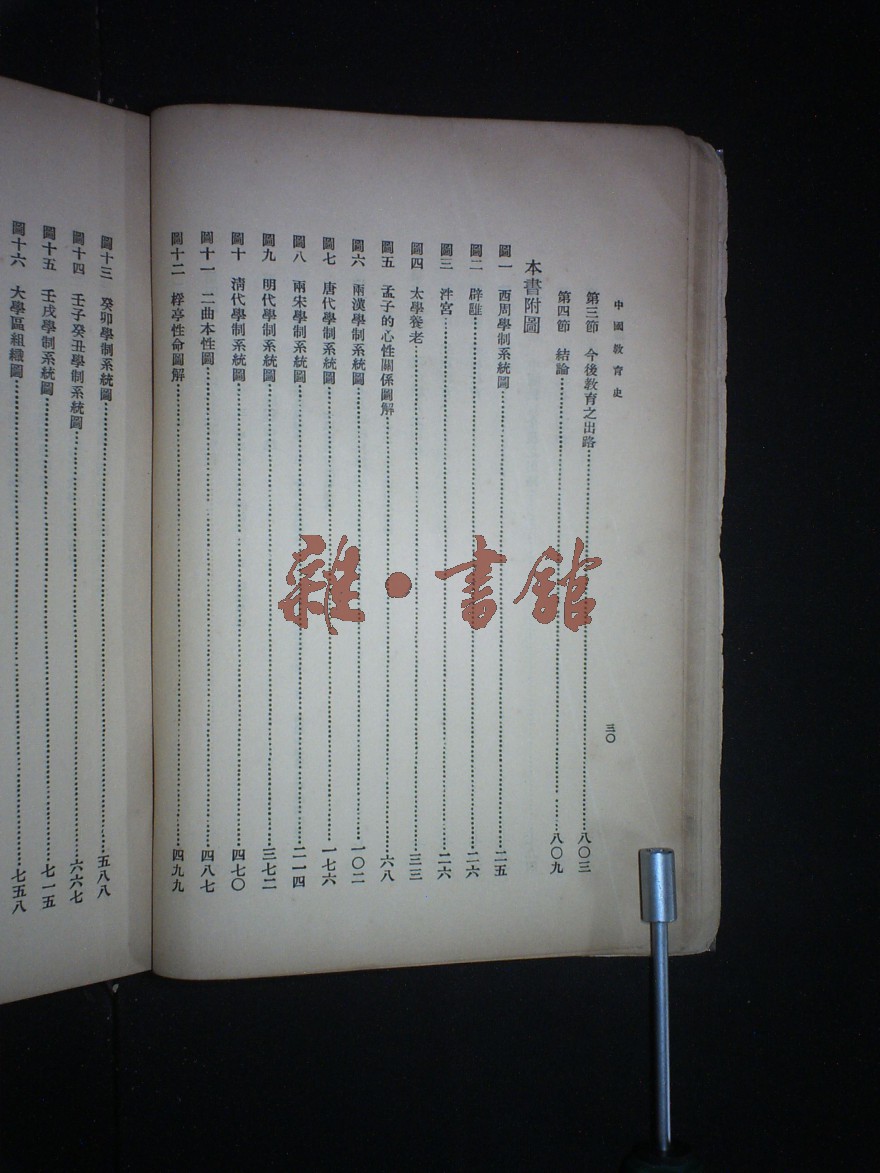 中國教育史
三〇
第三節　今後教育之出路……八〇三
第四節　結論……八〇九
本書附圖
圖一　西周學制系統圖……二五
圖二　辟雝……二六
圖三　泮宮……二六
圖四　太學養老……三三
圖五　孟子的心性關係圖解……六八
圖六　兩漢學制系統圖……一〇二
圖七　唐代學制系統圖……一七六
圖八　兩宋學制系統圖……二一四
圖九　明代學制系統圖……三七二
圖十　清代學制系統圖……四七〇
圖十一　二曲本性圖……四八七
圖十二　桴亭性命圖解……四九九
圖十三　癸卯學制系統圖……五八八
圖十四　壬子癸丑學制系統圖……六六七
圖十五　壬戌學制系統圖……七一五
圖十六　大學區組織圖……七五八
雜·書館